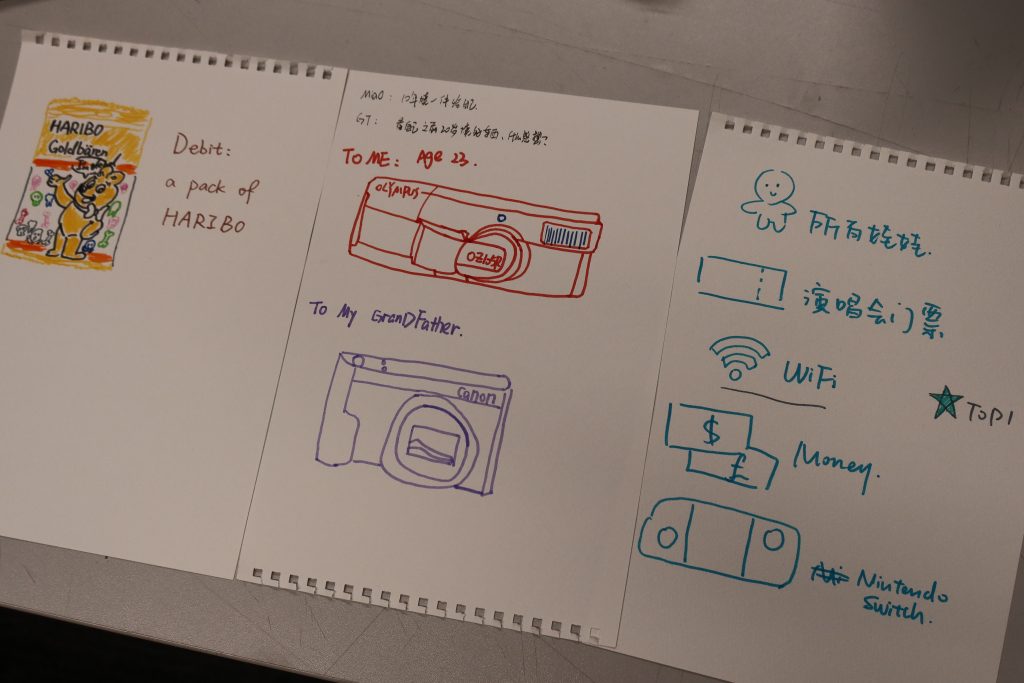 HARIBO
Goldbären
Debit:
a pack of
HARIBO
GT:
TO ME: Age 23.
OLYMPUS
To My GranDFather.
Canon
所有娃娃.
演唱会门票
WiFi
TOP1
$
£
Money.
Nintendo
Switch.